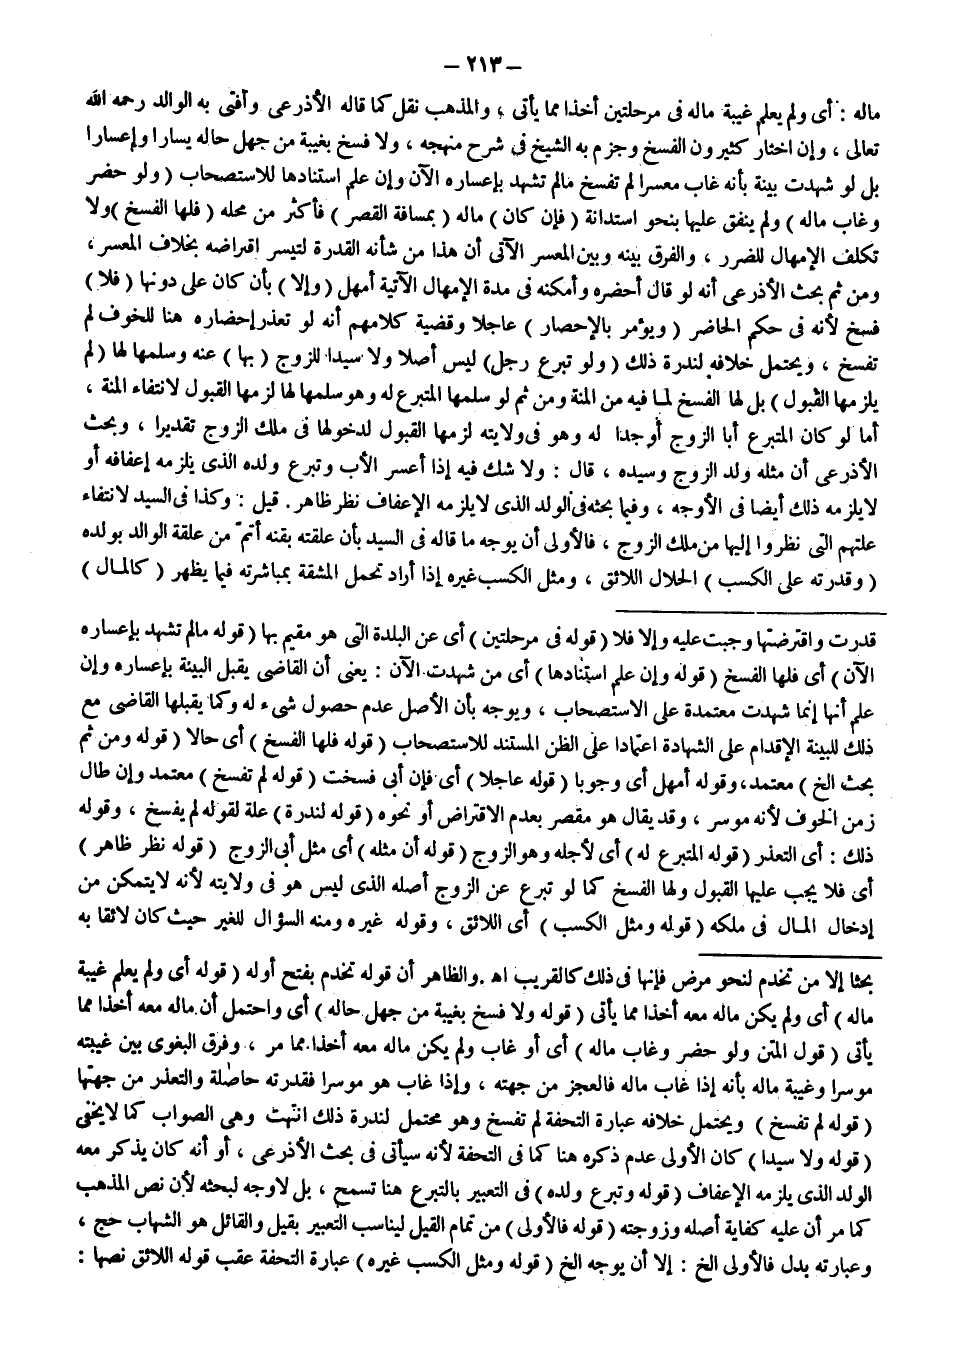 – ٢١٣ –
ماله : أى ولم يعلم غيبة ماله فى مرحلتين أخذا مما يأتى ، والمذهب نقل كما قاله الأذرعى وأفتى به الوالد رحمه الله
تعالى ، وإن اختار كثيرون الفسخ وجزم به الشيخ فى شرح منهجه ، ولا فسخ بغيبة من جهل حاله يسارا وإعسارا
بل لو شهدت بينة بأنه غاب معسرا لم تفسخ مالم تشهد بإعساره الآن وإن علم استنادها للاستصحاب ( ولو حضر
وغاب ماله ) ولم ينفق عليها بنحو استدانة ( فإن كان ) ماله ( بمسافة القصر ) فأكثر من محله ( فلها الفسخ ) ولا
تكلف الإمهال للضرر ، والفرق بينه وبين المعسر الآتى أن هذا من شأنه القدرة لتيسر اقتراضه بخلاف المعسر ،
ومن ثم بحث الأذرعى أنه لو قال أحضره وأمكنه فى مدة الإمهال الآتية أمهل ( وإلا ) بأن كان على دونها ( فلا )
فسخ لأنه فى حكم الحاضر ( ويؤمر بالإحضار ) عاجلا وقضية كلامهم أنه لو تعذر إحضاره هنا للخوف لم
تفسخ ، ويحتمل خلافه لندرة ذلك ( ولو تبرع رجل) ليس أصلا ولا سيدا للزوج ( بها ) عنه وسلمها لها ( لم
يلزمها القبول ) بل لها الفسخ لما فيه من المنة ومن ثم لو سلمها المتبرع له وهو سلمها لها لزمها القبول لانتفاء المنة ،
أما لو كان المتبرع أبا الزوج أو جدا له وهو فى ولايته لزمها القبول لدخولها فى ملك الزوج تقديرا ، وبحث
الأذرعى أن مثله ولد الزوج وسيده ، قال : ولا شك فيه إذا أعسر الأب وتبرع ولده الذى يلزمه إعفافه أو
لايلزمه ذلك أيضا فى الأوجه ، وفيما بحثه فى الولد الذى لايلزمه الإعفاف نظر ظاهر. قيل : وكذا فى السيد لانتفاء
علتهم التى نظروا إليها من ملك الزوج ، فالأولى أن يوجه ما قاله فى السيد بأن علقته بقنه أتمّ من علقة الوالد بولده
( وقدرته على الكسب ) الحلال اللائق ، ومثل الكسب غيره إذا أراد تحمل المشقة بمباشرته فيما يظهر ( كالمال )
قدرت واقترضتها وجبت عليه وإلا فلا ( قوله فى مرحلتين ) أى عن البلدة التى هو مقيم بها ( قوله مالم تشهد بإعساره
الآن ) أى فلها الفسخ ( قوله وإن علم استنادها ) أى من شهدت الآن : يعنى أن القاضى يقبل البينة بإعساره وإن
علم أنها إنما شهدت معتمدة على الاستصحاب ، ويوجه بأن الأصل عدم حصول شىء له وكما يقبلها القاضى مع
ذلك للبينة الإقدام على الشهادة اعتمادا على الظن المستند للاستصحاب ( قوله فلها الفسخ ) أى حالا ( قوله ومن ثم
بحث الخ ) معتمد، وقوله أمهل أى وجوبا ( قوله عاجلا ) أى فإن أبى فسخت ( قوله لم تفسخ ) معتمد وإن طال
زمن الخوف لأنه موسر ، وقد يقال هو مقصر بعدم الاقتراض أو نحوه ( قوله لندرة ) علة لقوله لم يفسخ ، وقوله
ذلك : أى التعذر ( قوله المتبرع له ) أى لأجله وهو الزوج ( قوله أن مثله ) أى مثل أبى الزوج ( قوله نظر ظاهر )
أى فلا يجب عليها القبول ولها الفسخ كما لو تبرع عن الزوج أصله الذى ليس هو فى ولايته لأنه لايتمكن من
إدخال المال فى ملكه ( قوله ومثل الكسب ) أى اللائق ، وقوله غيره ومنه السؤال للغير حيث كان لائقا به
بحثا إلا من تخدم لنحو مرض فإنها فى ذلك كالقريب اه . والظاهر أن قوله تخدم بفتح أوله ( قوله أى ولم يعلم غيبة
ماله ) أى ولم يكن ماله معه أخذا مما يأتى ( قوله ولا فسخ بغيبة من جهل حاله ) أى واحتمل أن ماله معه أخذا مما
يأتى ( قول المتن ولو حضر وغاب ماله ) أى أو غاب ولم يكن ماله معه أخذا مما مر ، وفرق البغوى بين غيبته
موسرا وغيبة ماله بأنه إذا غاب ماله فالعجز من جهته ، وإذا غاب هو موسرا فقدرته حاصلة والتعذر من جهتها
( قوله لم تفسخ ) ويحتمل خلافه عبارة التحفة لم تفسخ وهو محتمل لندرة ذلك انتهت وهى الصواب كما لايخفى
( قوله ولا سيدا ) كان الأولى عدم ذكره هنا كما فى التحفة لأنه سيأتى فى بحث الأذرعى ، أو أنه كان يذكر معه
الولد الذى يلزمه الإعفاف ( قوله وتبرع ولده ) فى التعبير بالتبرع هنا تسمح ، بل لاوجه لبحثه لأن نص المذهب
كما مر أن عليه كفاية أصله وزوجته ( قوله فالأولى ) من تمام القيل ليناسب التعبير بقيل والقائل هو الشهاب حج ،
وعبارته بدل فالأولى الخ : إلا أن يوجه الخ ( قوله ومثل الكسب غيره ) عبارة التحفة عقب قوله اللائق نصها :